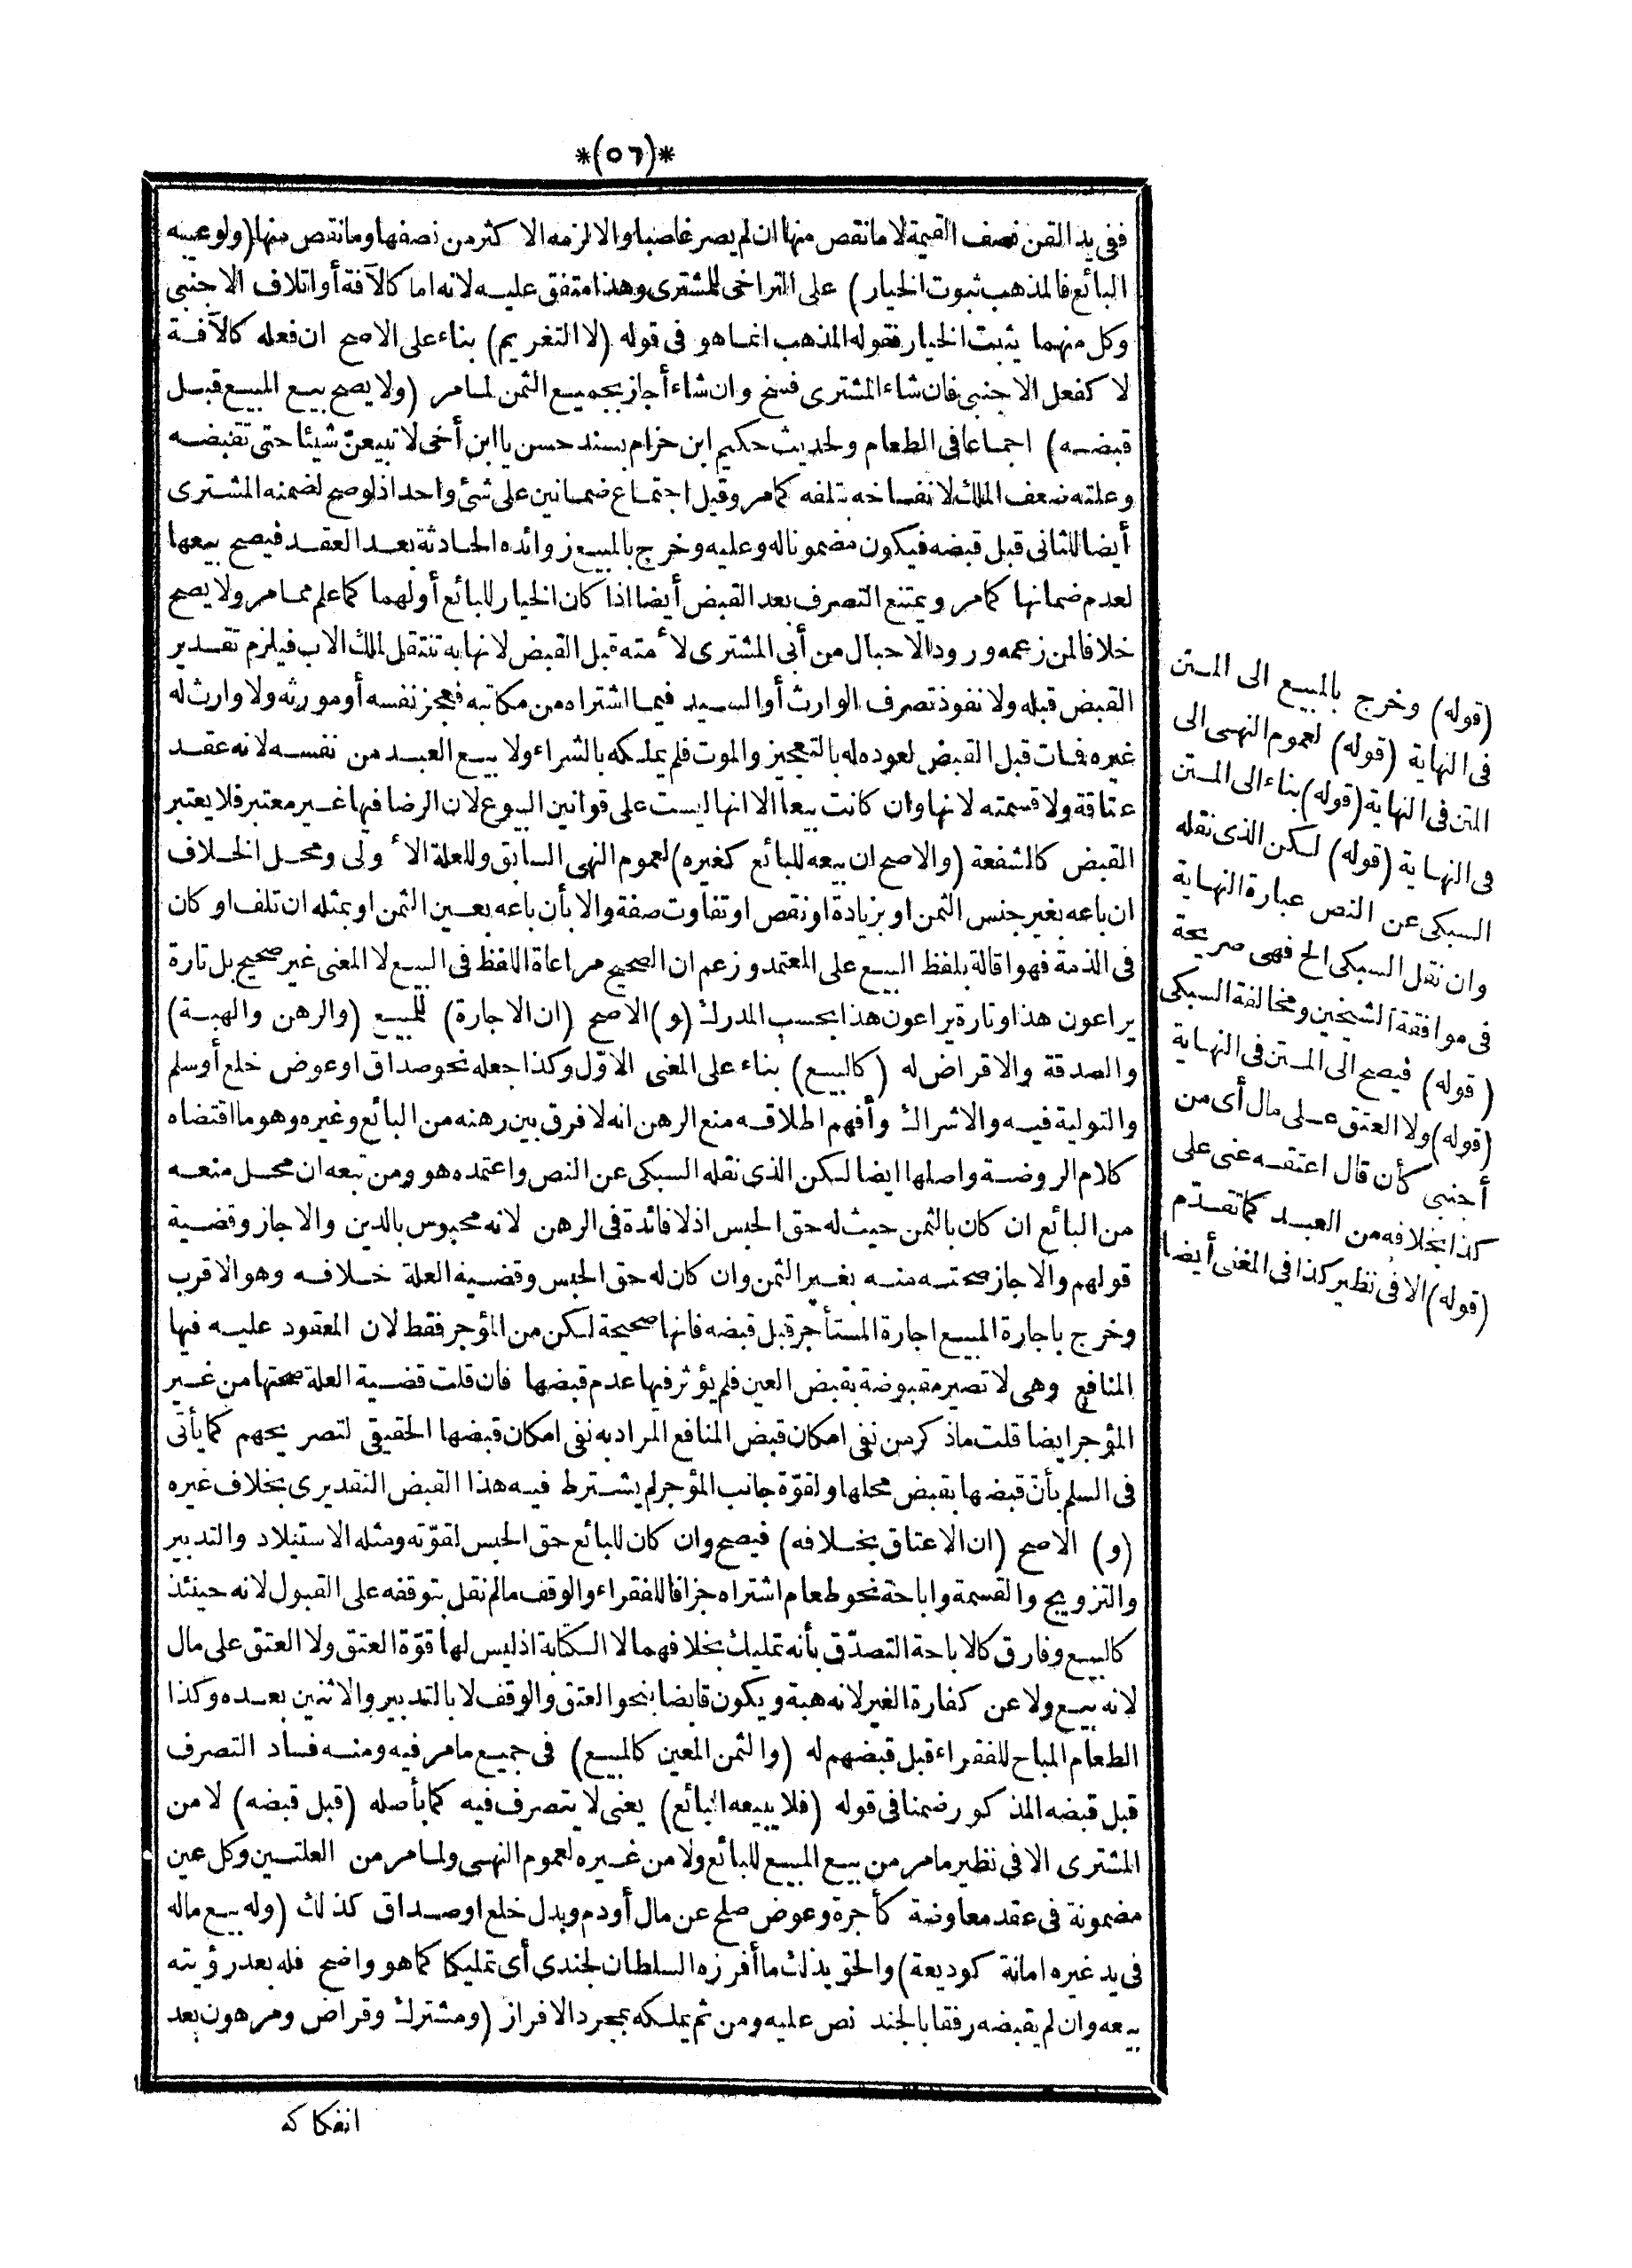 *(٥٦)*
ففى يد القن نصف القيمة لا ما نقص منها ان لم يصر غاصبا والا لزمه الاكثر من نصفها وما نقص منها (ولو عيبه
البائع فالمذهب ثبوت الخيار) على التراخى للمشترى وهذا متفق عليه لانه اما كالآفة أو اتلاف الاجنبى
وكل منهما يثبت الخيار فقوله المذهب انما هو فى قوله (لا التغريم) بناء على الاصح ان فعله كالآفة
لا كفعل الاجنبى فان شاء المشترى فسخ وان شاء أجاز بجميع الثمن لما مر (ولا يصح بيع المبيع قبل
قبضه) اجماعا فى الطعام ولحديث حكيم ابن حزام بسند حسن يا ابن أخى لا تبيعنّ شيئا حتى تقبضه
وعلته ضعف الملك لانفساخه بتلفه كما مر وقيل اجتماع ضمانين على شئ واحد اذ لو صح لضمنه المشترى
أيضا للثانى قبل قبضه فيكون مضمونا له وعليه وخرج بالمبيع زوائده الحادثة بعد العقد فيصح بيعها
لعدم ضمانها كما مر ويمتنع التصرف بعد القبض أيضا اذا كان الخيار للبائع أو لهما كما علم مما مر ولا يصح
خلافا لمن زعمه ورود الاحبال من أبى المشترى لأمته قبل القبض لانها به تنتقل لملك الاب فيلزم تقدير
القبض قبله ولا نفوذ تصرف الوارث أو السيد فيما اشتراه من مكاتبه فعجز نفسه أو مورثه ولا وارث له
غيره فمات قبل القبض لعوده له بالتعجيز والموت فلم يملكه بالشراء ولا بيع العبد من نفسه لانه عقد
عتاقة ولا قسمته لانها وان كانت بيعا الا انها ليست على قوانين البيوع لان الرضا فيها غير معتبر فلا يعتبر
القبض كالشفعة (والاصح ان بيعه للبائع كغيره) لعموم النهى السابق وللعلة الأولى ومحل الخلاف
ان باعه بغير جنس الثمن او بزيادة او نقص او تفاوت صفة والا بأن باعه بعين الثمن او بمثله ان تلف او كان
فى الذمة فهو اقالة بلفظ البيع على المعتمد وزعم ان الصحيح مراعاة اللفظ فى البيع لا المعنى غير صحيح بل تارة
يراعون هذا وتارة يراعون هذا بحسب المدرك (و) الاصح (ان الاجارة) للمبيع (والرهن والهبة)
والصدقة والاقراض له (كالبيع) بناء على المعنى الاوّل وكذا جعله نحو صداق او عوض خلع أو سلم
والتولية فيه والاشراك وأفهم اطلاقه منع الرهن انه لا فرق بين رهنه من البائع وغيره وهو ما اقتضاه
كلام الروضة واصلها ايضا لكن الذى نقله السبكى عن النص واعتمده هو ومن تبعه ان محل منعه
من البائع ان كان بالثمن حيث له حق الحبس اذ لا فائدة فى الرهن لانه محبوس بالدين والا جاز وقضية
قولهم والا جاز صحته منه بغير الثمن وان كان له حق الحبس وقضية العلة خلافه وهو الاقرب
وخرج باجارة المبيع اجارة المستأجر قبل قبضه فانها صحيحة لكن من المؤجر فقط لان المعقود عليه فيها
المنافع وهى لا تصير مقبوضة بقبض العين فلم يؤثر فيها عدم قبضها فان قلت قضية العلة صحتها من غير
المؤجر ايضا قلت ما ذكر من نفى امكان قبض المنافع المراد به نفى امكان قبضها الحقيقى لتصريحهم كما يأتى
فى السلم بأن قبضها بقبض محلها ولقوّة جانب المؤجر لم يشترط فيه هذا القبض التقديرى بخلاف غيره
(و) الاصح (ان الاعتاق بخلافه) فيصح وان كان للبائع حق الحبس لقوّته ومثله الاستيلاد والتدبير
والتزويج والقسمة واباحة نحو طعام اشتراه جزافا للفقراء والوقف ما لم نقل بتوقفه على القبول لانه حينئذ
كالبيع وفارق كالاباحة التصدّق بأنه تمليك بخلافهما لا الكتابة اذ ليس لها قوّة العتق ولا العتق على مال
لانه بيع ولا عن كفارة الغير لانه هبة ويكون قابضا بنحو العتق والوقف لا بالتدبير والاثنين بعده وكذا
الطعام المباح للفقراء قبل قبضهم له (والثمن المعين كالمبيع) فى جميع ما مر فيه ومنه فساد التصرف
قبل قبضه المذكور ضمنا فى قوله (فلا يبيعه البائع) يعنى لا يتصرف فيه كما بأصله (قبل قبضه) لا من
المشترى الا فى نظير ما مر من بيع المبيع للبائع ولا من غيره لعموم النهى ولما مر من العلتين وكل عين
مضمونة فى عقد معاوضة كأجرة وعوض صلح عن مال أو دم وبدل خلع او صداق كذلك (وله بيع ماله
فى يد غيره امانة كوديعة) والحق بذلك ما أفرزه السلطان لجندى أى تمليكا كما هو واضح فله بعد رؤيته
بيعه وان لم يقبضه رفقا بالجند نص عليه ومن ثم يملكه بمجرد الافراز (ومشترك وقراض ومرهون بعد
انفكاكه
(قوله) وخرج بالمبيع الى المتن
فى النهاية (قوله) لعموم النهى الى
المتن فى النهاية (قوله) بناء الى المتن
فى النهاية (قوله) لكن الذى نقله
السبكى عن النص عبارة النهاية
وان نقل السبكى الخ فهى صريحة
فى موافقة الشيخين ومخالفة السبكى
(قوله) فيصح الى المتن فى النهاية
(قوله) ولا العتق على مال أى من
أجنبى كأن قال اعتقه عنى على
كذا بخلافه من العبد كما تقدّم
(قوله) الا فى نظير كذا فى المغنى أيضا